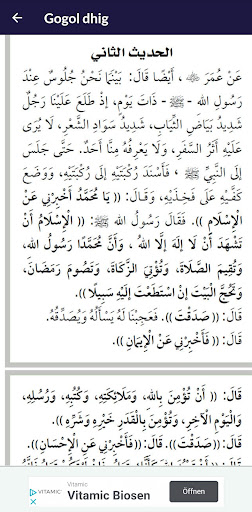 Gogol dhig
الحديث الثاني
عَنْ عُمَرَ ﷺ، أَيْضًا قَالَ: بَيْنَمَا نَحْنُ جُلُوسٌ عِنْدَ
رَسُولِ اللهِ -ﷺ- ذَاتَ يَوْمٍ، إِذْ طَلَعَ عَلَيْنَا رَجُلٌ
شَدِيدُ بَيَاضِ الثِّيَابِ، شَدِيدُ سَوَادِ الشَّعْرِ، لَا يُرَى
عَلَيْهِ أَثَرُ السَّفَرِ، وَلَا يَعْرِفُهُ مِنَّا أَحَدٌ. حَتَّى جَلَسَ
إِلَى النَّبِيِّ ﷺ، فَأَسْنَدَ رُكْبَتَيْهِ إِلَى رُكْبَتَيْهِ، وَوَضَعَ
كَفَّيْهِ عَلَى فَخِذَيْهِ، وَقَالَ: (( يَا مُحَمَّدُ أَخْبِرْنِي عَنْ
الْإِسْلَامِ )). فَقَالَ رَسُولُ اللهِ ﷺ: (( الْإِسْلَامُ أَنْ
تَشْهَدَ أَنْ لَا إِلَهَ إِلَّا اللهُ ، وَأَنَّ مُحَمَّدًا رَسُولُ اللهِ،
وَتُقِيمَ الصَّلَاةَ، وَتُؤْتِيَ الزَّكَاةَ، وَتَصُومَ رَمَضَانَ،
وَتَحُجَّ الْبَيْتَ إِنْ اسْتَطَعْتَ إِلَيْهِ سَبِيلًا )).
قَالَ: (( صَدَقْتَ )). فَعَجِبْنَا لَهُ يَسْأَلُهُ وَيُصَدِّقُهُ.
قَالَ: (( فَأَخْبِرْنِي عَنْ الْإِيمَانِ )).
قَالَ: (( أَنْ تُؤْمِنَ بِاللهِ، وَمَلَائِكَتِهِ، وَكُتُبِهِ، وَرُسُلِهِ،
وَالْيَوْمِ الْآخِرِ، وَتُؤْمِنَ بِالْقَدَرِ خَيْرِهِ وَشَرِّهِ )).
قَالَ: (( صَدَقْتَ )). قَالَ: (( فَأَخْبِرْنِي عَنْ الْإِحْسَانِ )).
Vitamic
Vitamic Biosen
VITAMIC
Öffnen